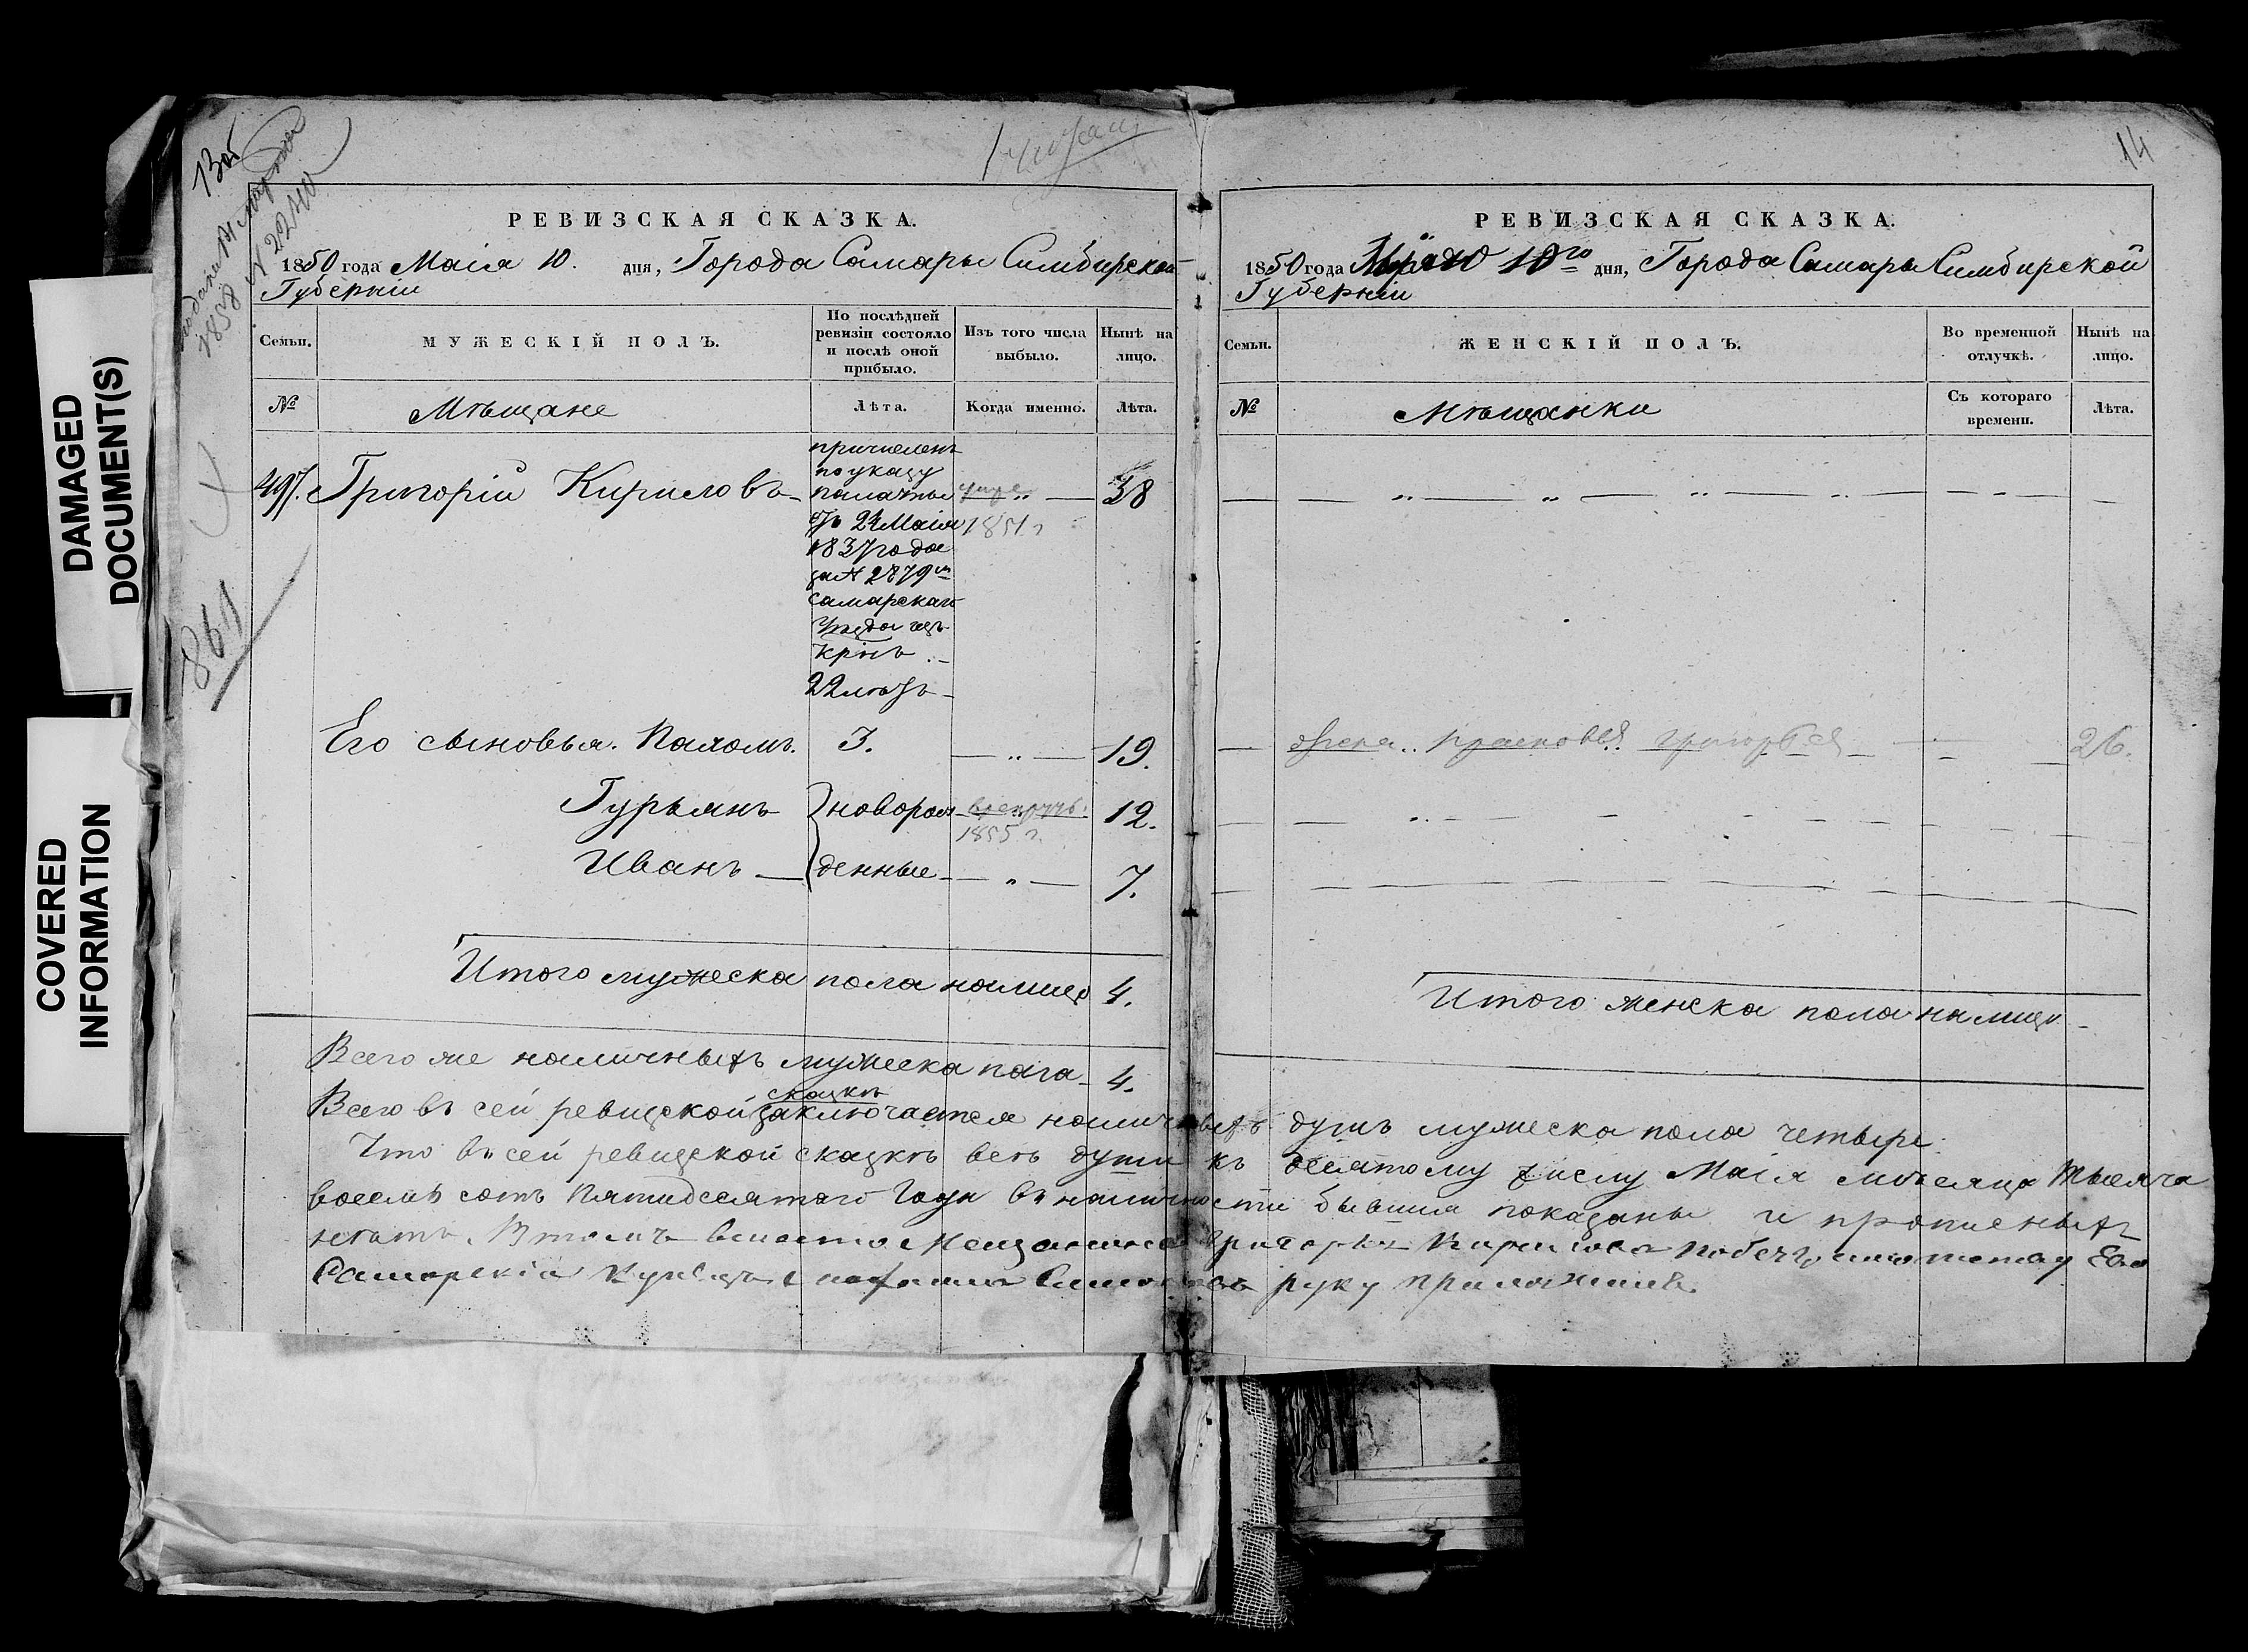 DAMAGED
DOCUMENT(S)
COVERED
INFORMATION
1858 № 2240
861
РЕВИЗСКАЯ СКАЗКА.
1850 года Маія 10. дня, Города Самары Симбирской
Губерніи
Семьи.
МУЖЕСКІЙ ПОЛЪ.
По послѣдней
ревизіи состояло
и послѣ оной
прибыло.
Изъ того числа
выбыло.
Нынѣ на
лицо.
№
Мѣщане
Лѣта.
Когда именно.
Лѣта.
497. Григорій Кириловъ 38
причисленъ
по указу
палаты
24 Маія
1837 года
за № 2879м
Самарскаго
Уѣзда изъ
Крнъ
22 лѣтъ
1851 г
Его сыновья. Пахомъ. 3. 19.
Гурьянъ новорож 12.
1855 г.
Иванъ денные 7.
Итого мужеска пола налицо 4.
Всего же наличныхъ мужеска пола 4.
14
РЕВИЗСКАЯ СКАЗКА.
1850 года 10го дня, Города Самары Симбирской
Губерніи
Семьи.
ЖЕНСКІЙ ПОЛЪ.
Во временной
отлучкѣ.
Нынѣ на
лицо.
№
Мѣщанки
Съ котораго
времени.
Лѣта.
жена Прасковья Григорьев 26.
Итого женска пола на лицо
сказкѣ
Всего въ сей ревизской заключается наличныхъ душъ мужеска пола четыре.
Что въ сей ревизской сказкѣ всѣ души къ десятому числу Маія мѣсяца тысяча
восемь сотъ пятидесятаго года въ наличности бывшія показаны и прописныхъ
нѣтъ. В томъ вместо Мещанина Григорья Кирилова
Самарскій Купецъ руку приложилъ.